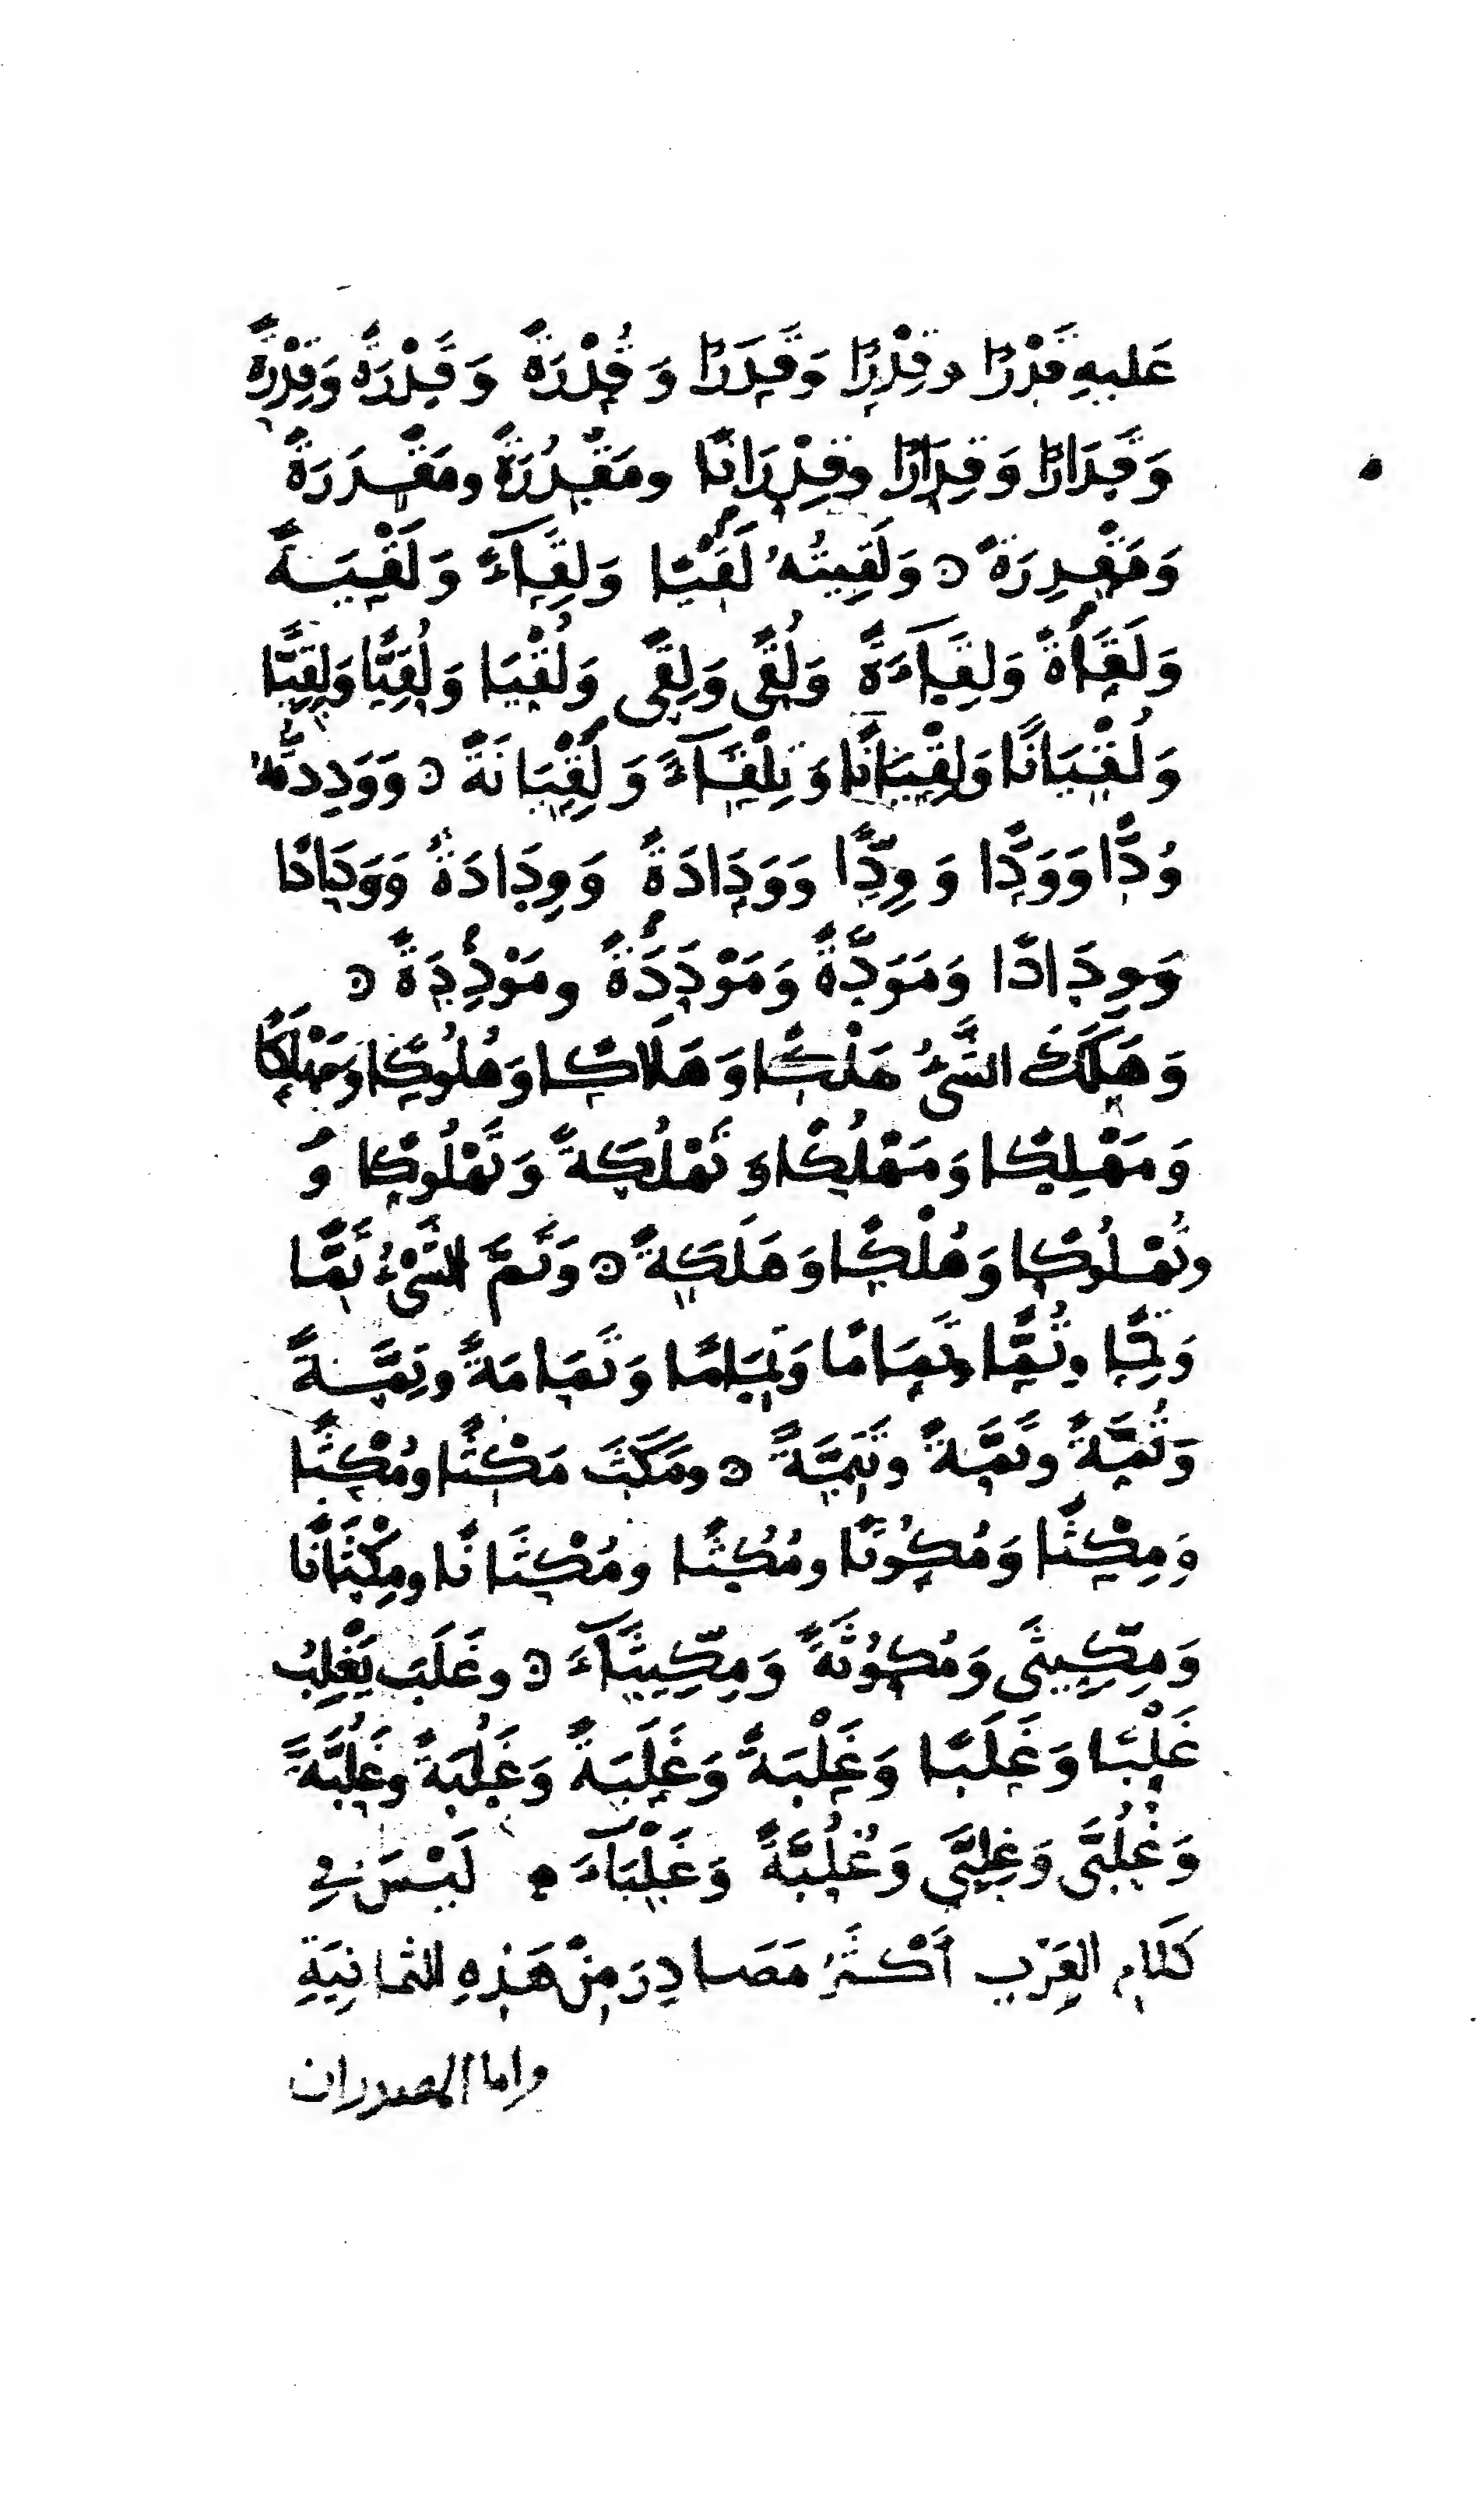 عَليهِ قَدْرًا وقِدْرًا وَقَدَرًا وَقُدْرَةً وَقَدْرَةً وَقِدْرَةً
وَقَدَارًا وَقِدَارًا وقِدْرَانًا ومَقْدُرَةً ومَقْدَرَةً
وَمَقْدِرَةً ٥ وَلَقِيتُهُ لَقْيًا وَلِقَآءً وَلَقْيَةً
وَلَقَاْةً وَلِقَآءَةً وَلُقًى وَلِقًى وَلُقْيَا وَلُقِيًّا وَلِقِيًّا
وَلُقْيَانًا وَلِقْيَانًا وَتِلْقَآءً وَلِقْيَانَةً ٥ وَوَدِدتُّهُ
وُدًّا وَوَدًّا وَوِدًّا وَوَدَادَةً وَوِدَادَةً وَوَدَادًا
وَوِدَادًا وَمَوَدَّةً وَمَوْدَدَةً ومَوْدِدَةً ٥
وَهَلَكَ الشَّىْءُ هَلْكًا وَهَلَاكًا وَهُلُوكًا وَمَهْلَكًا
وَمَهْلِكًا وَمَهْلُكًا وَتَهْلُكَةً وَتَهْلُوكًا وَ
وتُهْلُوكًا وَهُلْكًا وَهَلَكَةً ٥ وَتَمَّ الشَّىْءُ تَمًّا
وَتِمًّا وتُمًّا وتَمَامًا وَتِمَامًا وَتَمَامَةً وتِمَّةً
وَتُمَّةً وتَمَّةً وتَتِمَّةً ٥ ومَكَثَ مَكْثًا ومُكْثًا
وَمِكْثًا وَمُكُوثًا ومُكُثًا ومُكْثَانًا ومِكْثَانًا
وَمِكِّيثَى وَمُكُوْثَةً وَمِكِّيثَآءَ ٥ وغَلَبَ يَغْلِبُ
غَلْبًا وَغَلَبًا وَغَلْبَةً وَغَلَبَةً وَغَلُبَةً وغَلُبَّةً
وَغُلُبَّى وَغِلِبَّى وَغُلُبَّةً وَغَلْبَآءَ ٥ لَيْسَ فِي
كَلام العَرَب أَكْثَرُ مَصَادِرَ مِنْ هَذِهِ الثمانِيَةِ
واما المصدران